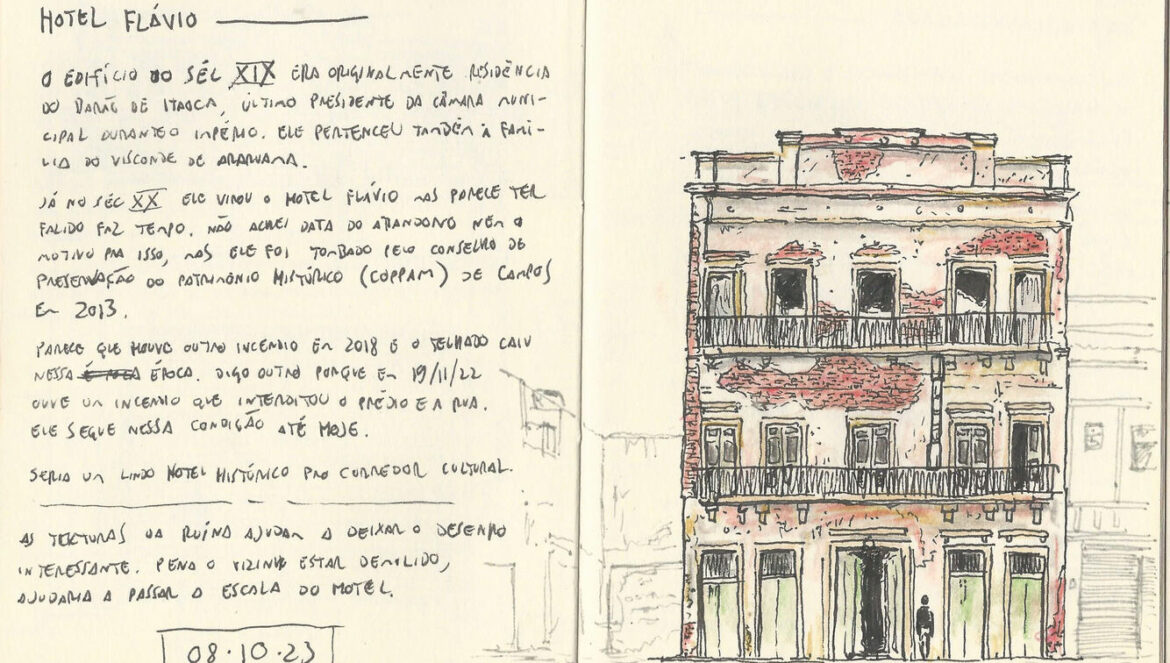 HOTEL FLÁVIO
O EDIFÍCIO DO SÉC XIX ERA ORIGINALMENTE RESIDÊNCIA
DO BARÃO DE ITAOCA, ÚLTIMO PRESIDENTE DA CÂMARA MUNI-
CIPAL DURANTE O IMPÉRIO. ELE PERTENCEU TAMBÉM À FAMÍ-
LIA DO VISCONDE DE ARARUAMA.
JÁ NO SÉC XX ELE VIROU O HOTEL FLÁVIO MAS PARECE TER
FALIDO FAZ TEMPO. NÃO ACHEI DATA DO ABANDONO NEM O
MOTIVO PRA ISSO, MAS ELE FOI TOMBADO PELO CONSELHO DE
PRESERVAÇÃO DO PATRIMÔNIO HISTÓRICO (COPPAM) DE CAMPOS
EM 2013.
PARECE QUE HOUVE OUTRO INCENDIO EM 2018 E O TELHADO CAIU
NESSA ÉPOCA. DIGO OUTRO PORQUE EM 19/11/22
OUVE UM INCENDIO QUE INTERDITOU O PRÉDIO E A RUA.
ELE SEGUE NESSA CONDIÇÃO ATÉ HOJE.
SERIA UM LINDO HOTEL HISTÓRICO PRO CORREDOR CULTURAL.
AS TEXTURAS DA RUÍNA AJUDAM A DEIXAR O DESENHO
INTERESSANTE. PENA O VIZINHO ESTAR DEMOLIDO,
AJUDARIA A PASSAR A ESCALA DO HOTEL.
08.10.23